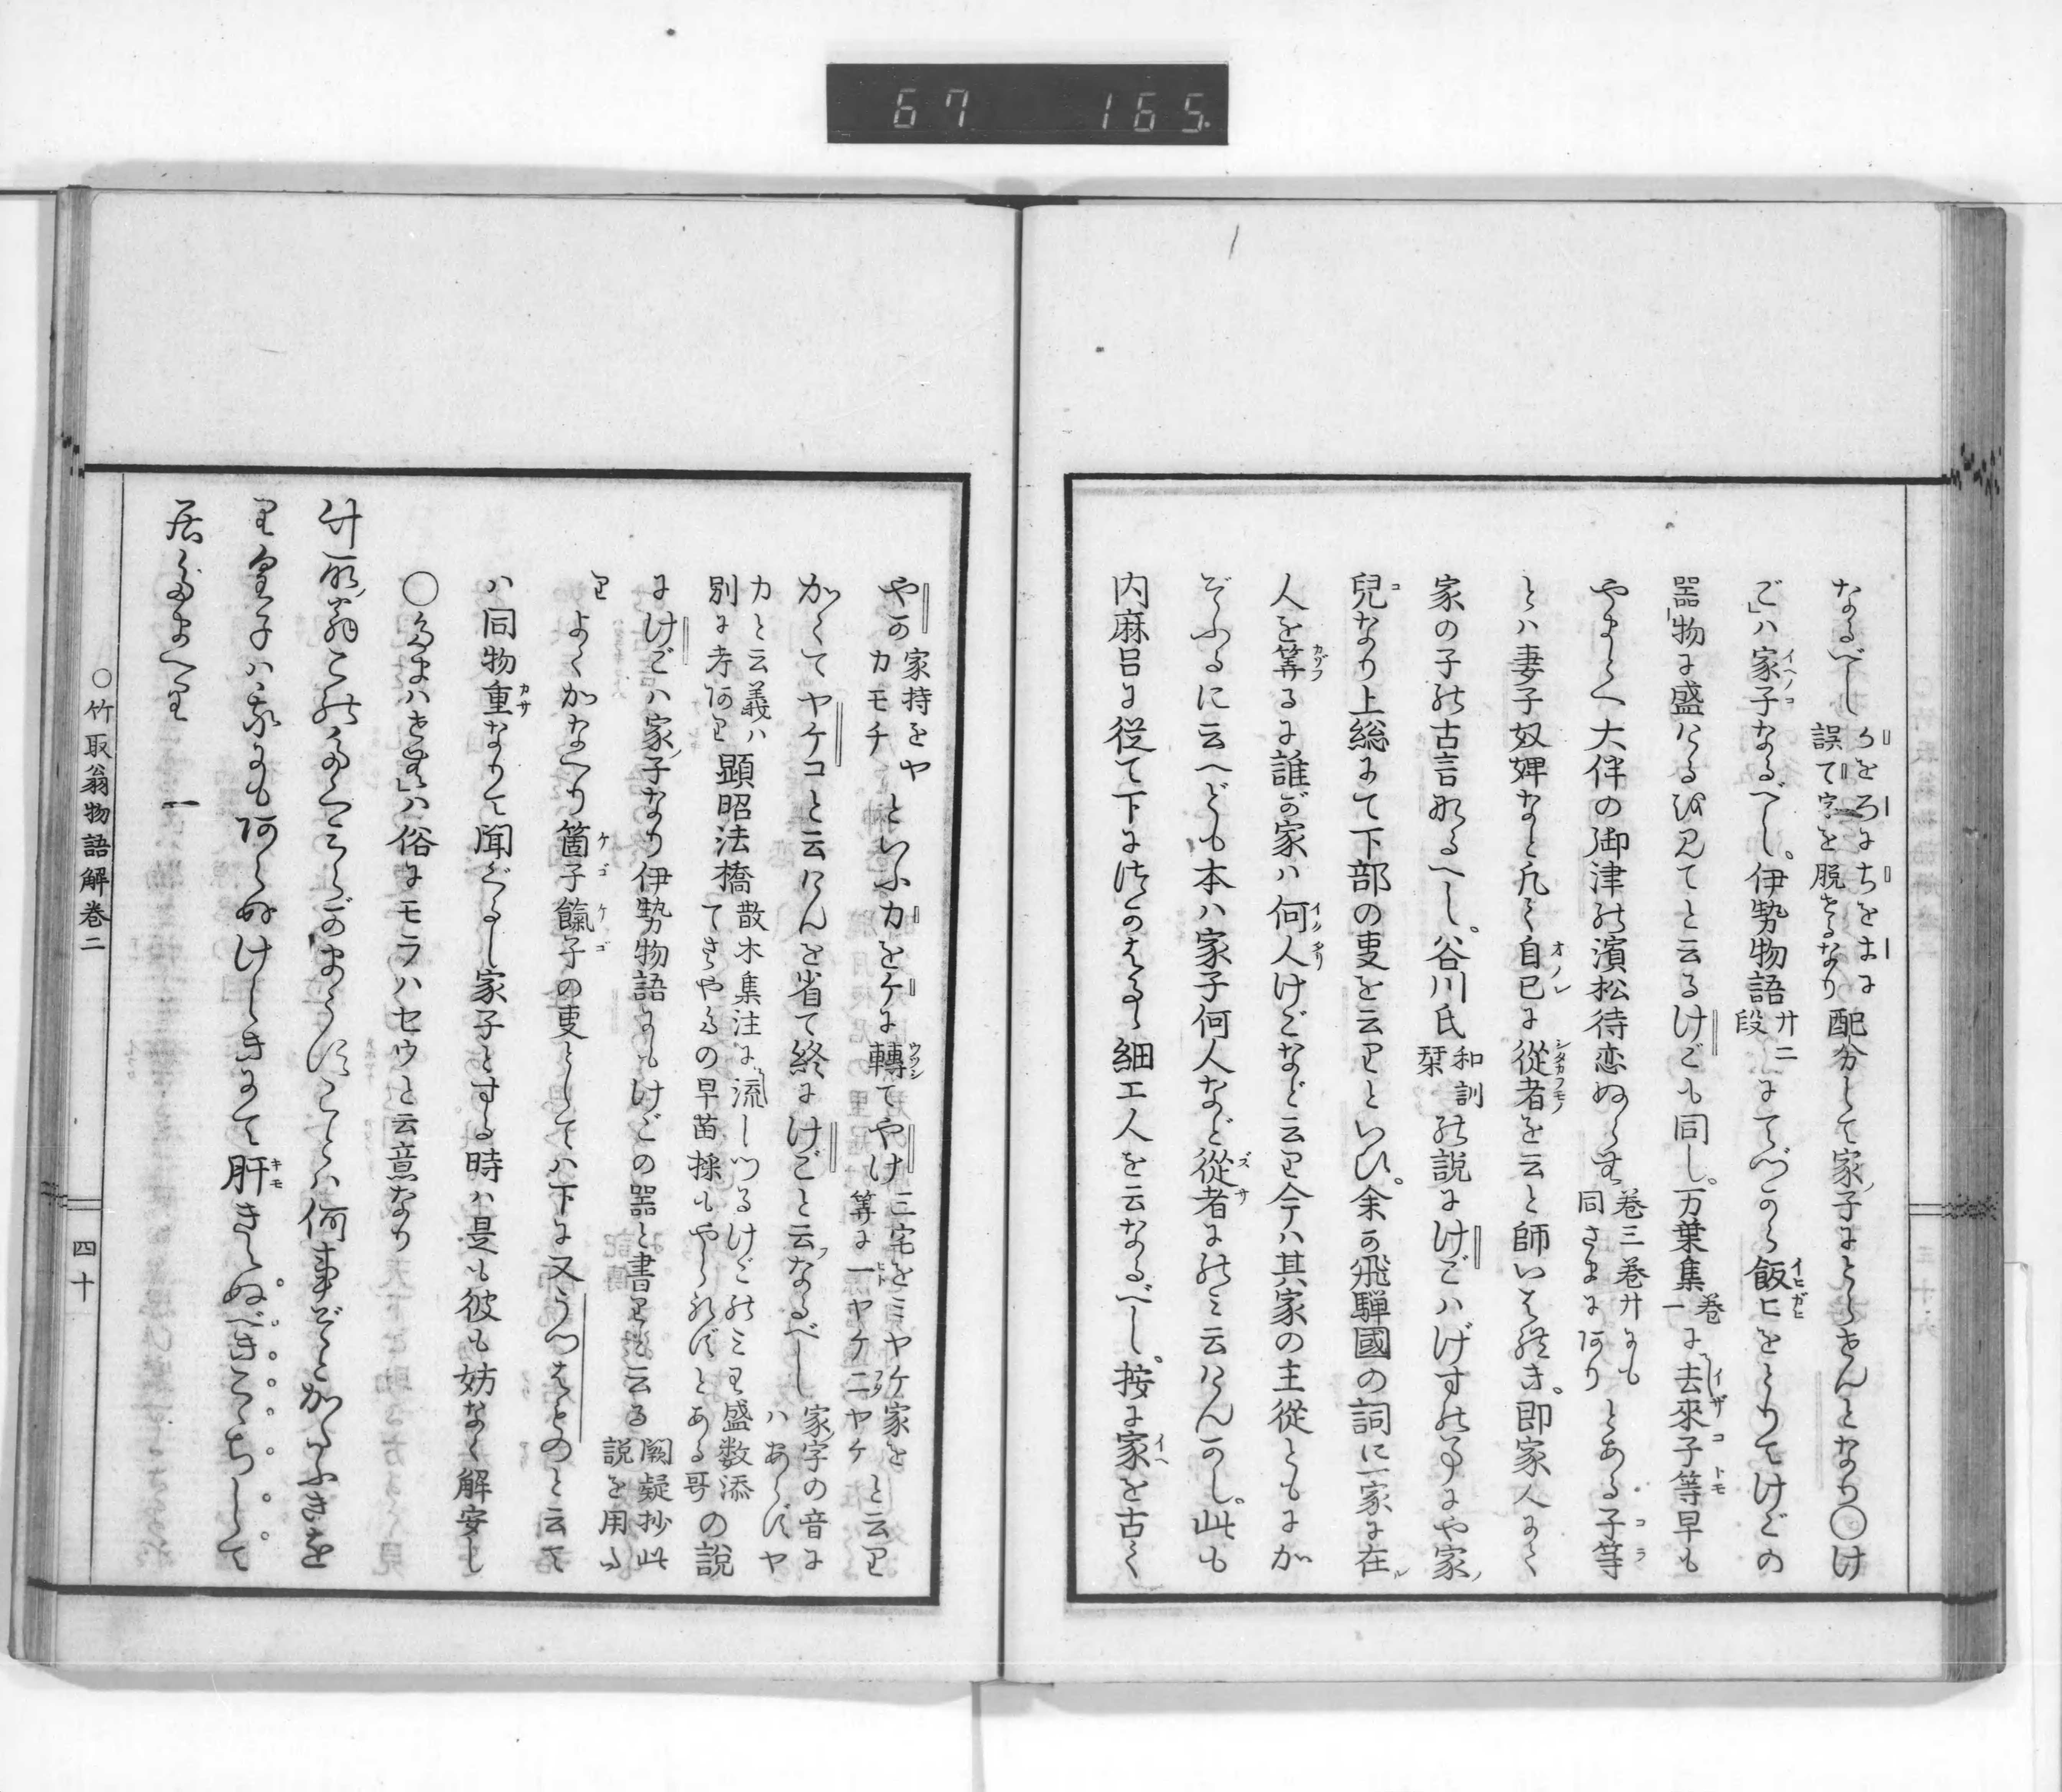 67 165.
なるべし りをろにちをまに誤て字を脱せるなり 配分して家ノ子にとらせんとなり〇け
ご」ハ家子なるべし。伊勢物語 廿二段 にてづから飯匕をとりてけごの
器」物に盛けるを見てと云るけごも同し。万葉集 巻一 に去來子等早も
やまとへ大伴の御津の濱松待恋ぬらむ 巻三巻廿にも同さまにあり とある子等
とハ妻子奴婢など凡て自已に從者を云と師いはれき。即家人にて
家の子の古言なるへし。谷川氏 和訓栞 の説にけごハげすの事にや家ノ
兒なり上総にて下部の叓を云りといひ。余か飛騨國の詞に一家に在ル
人を筭るに誰が家ハ何人けごなど云り今ハ其家の主從ともにか
ぞふるに云へども本ハ家子何人など從者にのミ云けんかし。此も
内麻呂に従て下につかはるゝ細工人を云なるべし。按に家を古く
やか 家持をヤカモチ といふカをケに轉てやけ 三宅をミヤケ家を等に一ヤケ二ヤケ と云り
かくてヤケコと云けんを省て終にけごと云フなるべし 家字の音にハあらずヤ
カと云義ハ別に考あり 顕昭法橋 散木集注に流しつるけごのミり盛数添てさやるの早苗採もやられずとある哥 の説
にけごハ家ノ子なり伊勢物語にもけごの器と書りと云る 闕疑抄此説を用ゐ
り よくかなへり箇子餼子の叓としてハ下に又うつはものと云て
ハ同物重なりて聞ぐるし家子とする時ハ是も彼も妨なく解安し
〇たまハせむ」ハ俗にモラハセウと云意なり
竹取ノ翁このたくミらがまうすことハ何事ぞとかたふきを
り皇子ハ我にもあらぬけしきにて肝きえぬべきこゝちして
居たまへり 一
〇竹取翁物語解巻二
四十